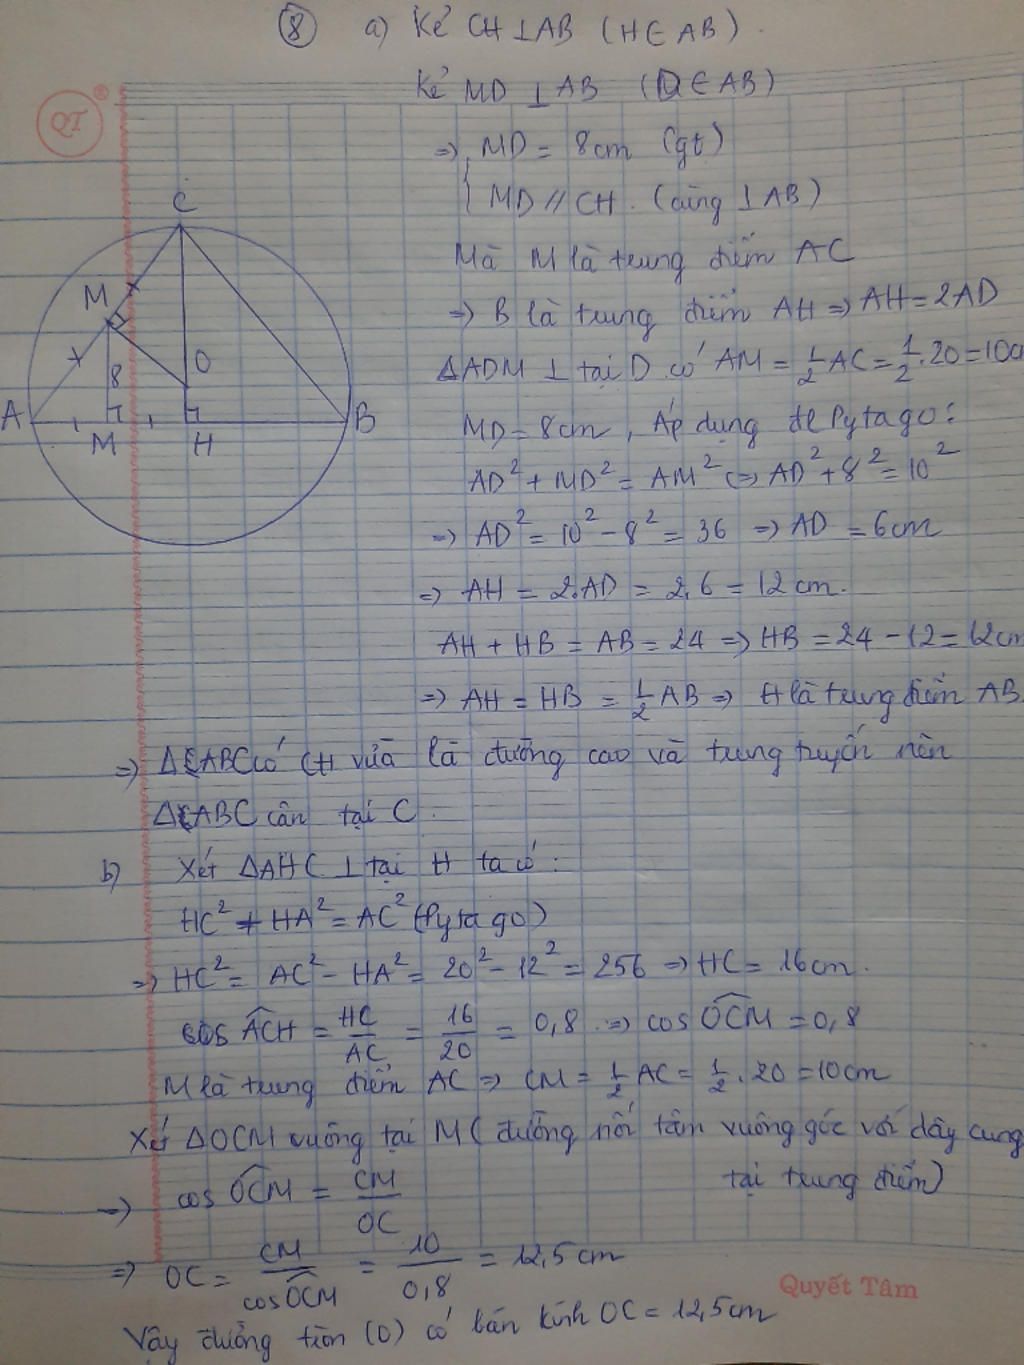 ⑧ a) Kẻ CH ⊥ AB (H ∈ AB).
Kẻ MD ⊥ AB (D ∈ AB)
QT ®
⇒ MD = 8cm (gt)
{ MD // CH. (cùng ⊥ AB)
Mà M là trung điểm AC
⇒ B là trung điểm AH ⇒ AH = 2AD
ΔADM ⊥ tại D có AM = 1/2 AC = 1/2 . 20 = 10c
MD = 8cm, Áp dụng đl Pytago:
AD² + MD² = AM² ⇔ AD² + 8² = 10²
⇒ AD² = 10² - 8² = 36 ⇒ AD = 6cm
⇒ AH = 2.AD = 2.6 = 12cm.
AH + HB = AB = 24 ⇒ HB = 24 - 12 = 12cm
⇒ AH = HB = 1/2 AB ⇒ H là trung điểm AB.
C
M
O
8
A
M
H
B
⇒ ΔABC có CH vừa là đường cao và trung tuyến nên
ΔABC cân tại C.
b) Xét ΔAHC ⊥ tại H ta có:
HC² + HA² = AC² (Pytago)
⇒ HC² = AC² - HA² = 20² - 12² = 256 ⇒ HC = 16cm.
cos ACH = HC/AC = 16/20 = 0,8 ⇒ cos OCM = 0,8
M là trung điểm AC ⇒ CM = 1/2 AC = 1/2 . 20 = 10cm
Xét ΔOCM vuông tại M (đường nối tâm vuông góc với dây cung
tại trung điểm)
⇒ cos OCM = CM/OC
⇒ OC = CM/cos OCM = 10/0,8 = 12,5cm
Quyết Tâm
Vậy đường tròn (O) có bán kính OC = 12,5cm